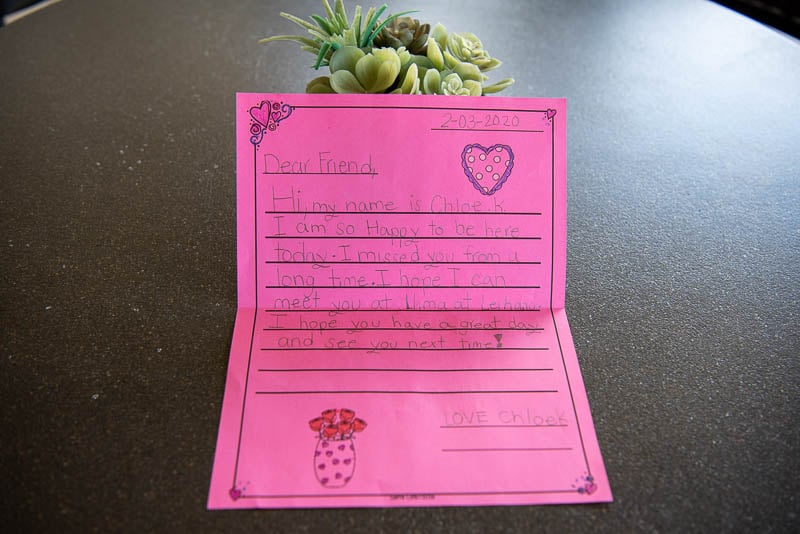 2-03-2020
Dear Friend,
Hi, my name is Chloe.K.
I am so Happy to be here
today. I missed you from a
long time. I hope I can
meet you at at
I hope you have a great day
and see you next time!
LOVE ChloeK